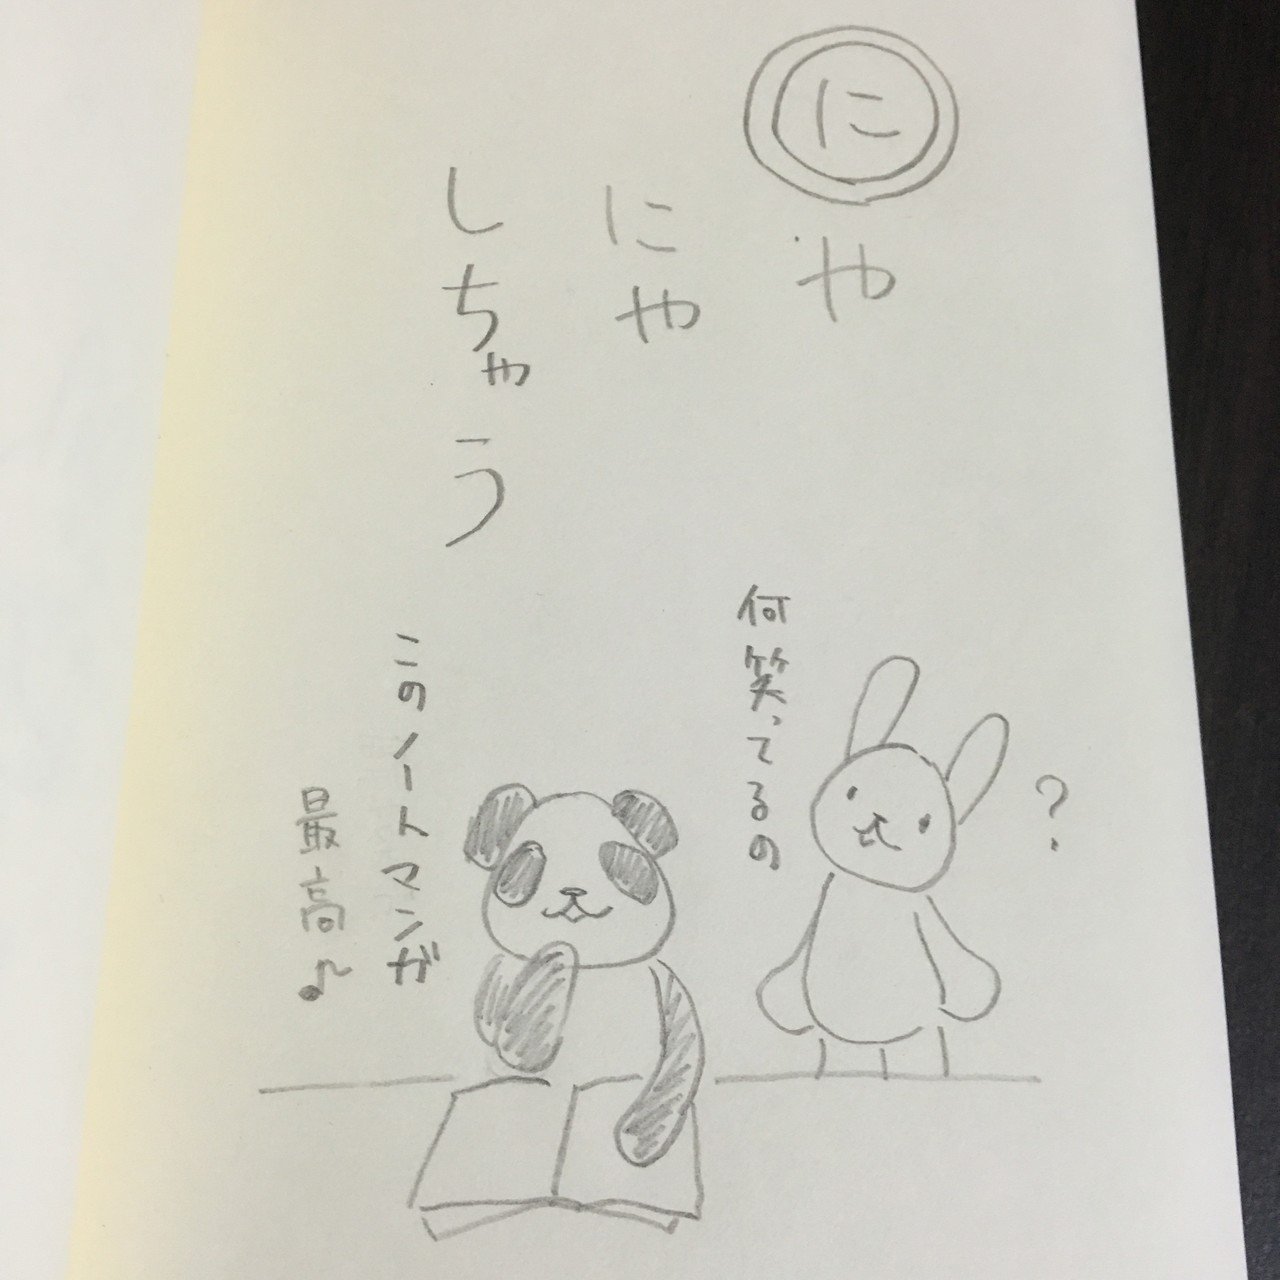 に
や
にや
しちゃう
何笑ってるの
?
このノートマンガ
最高♪